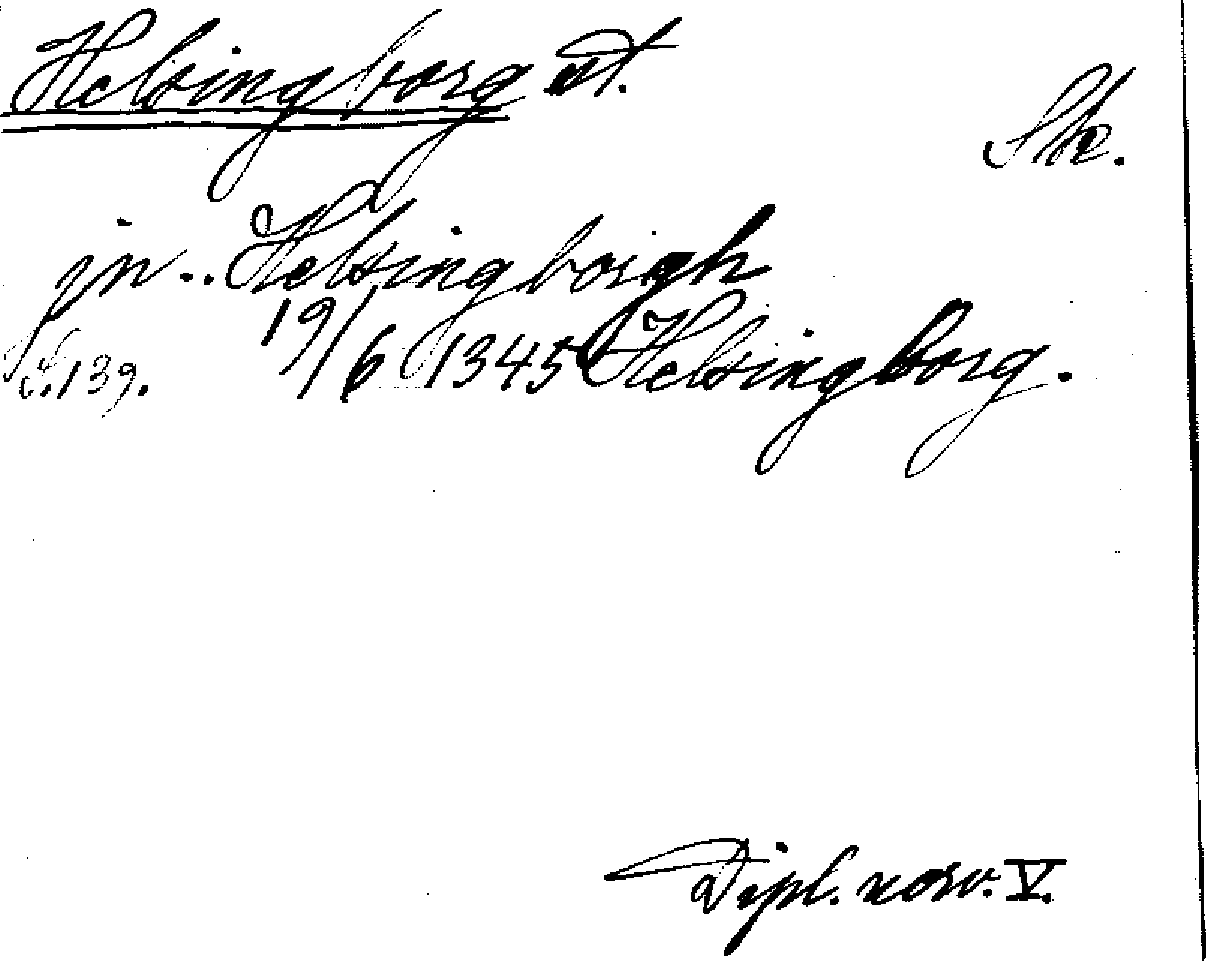 Helsingborg st.
Sk.
jn .. Helsingborgh
s. 139. 19/6 1345 Helsingborg.
Dipl. norv. V.